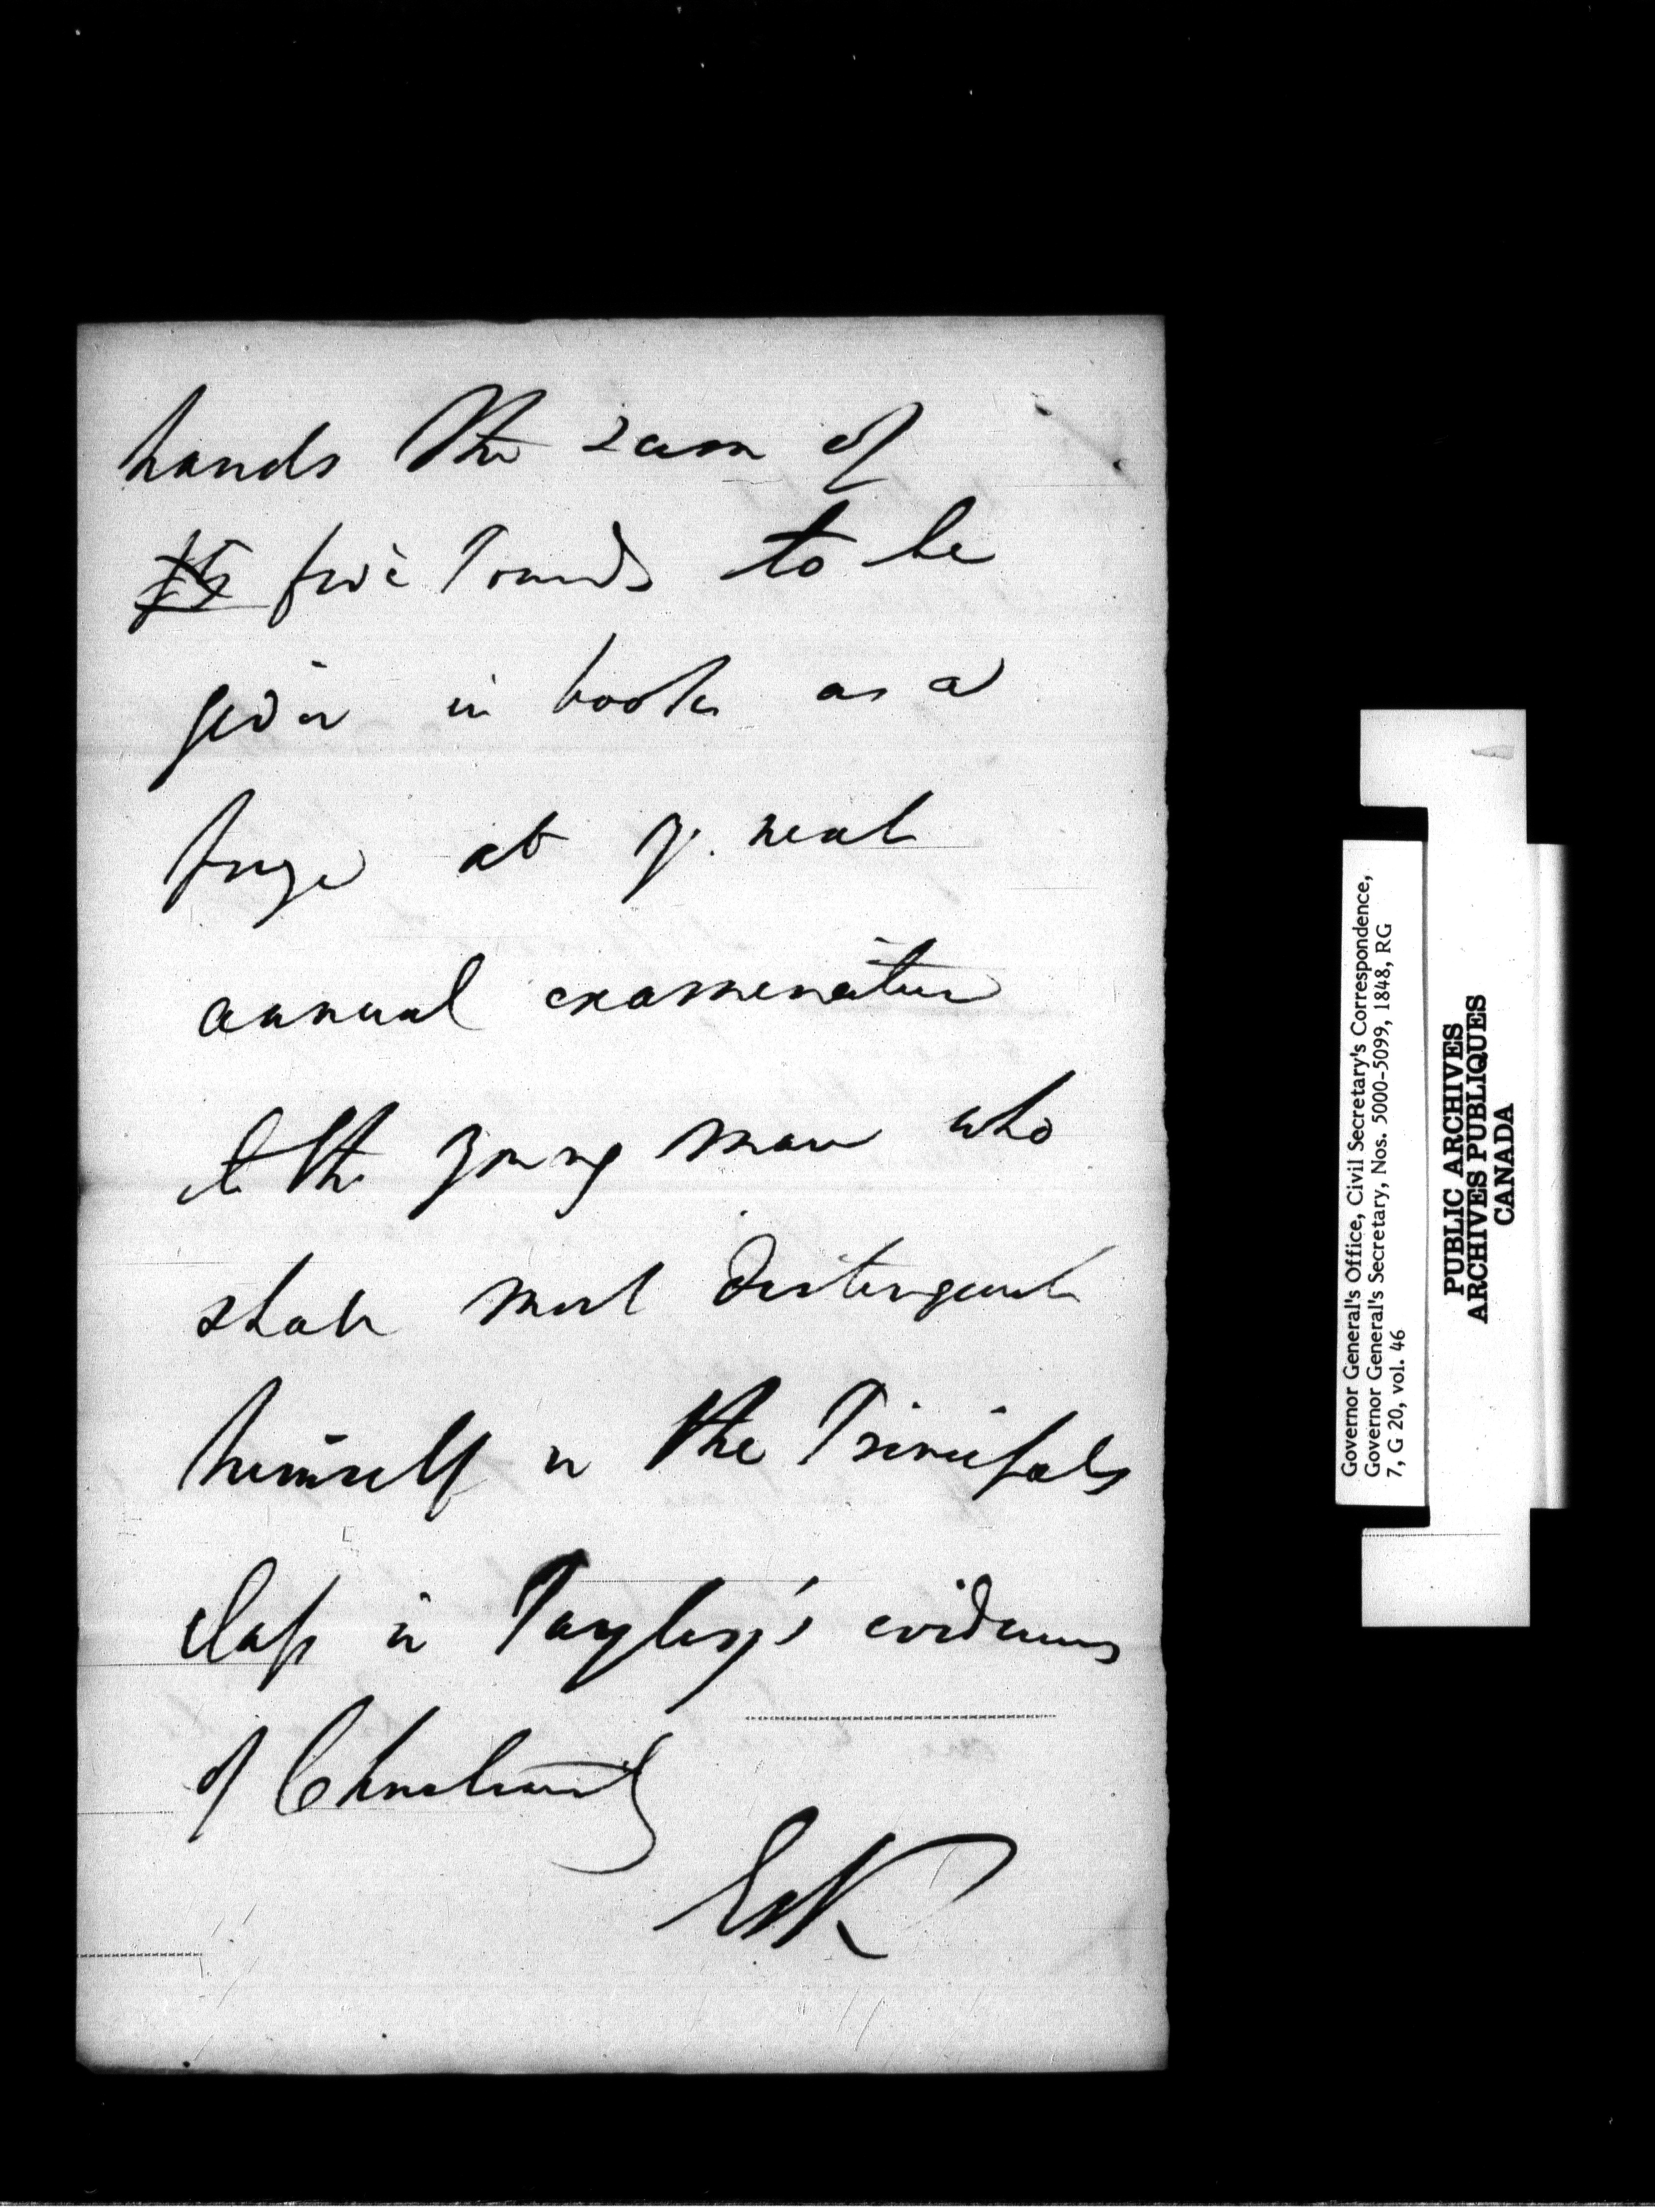 hands the sum of
£5 five Pounds to be
given in books as a
prize at y. next
annual examination
to the young man who
shall most distinguish
himself in the Principals
class in Payley's evidences
of Christianity
Governor General's Office, Civil Secretary's Correspondence,
Governor General's Secretary, Nos. 5000-5099, 1848, RG
7, G 20, vol. 46
PUBLIC ARCHIVES
ARCHIVES PUBLIQUES
CANADA